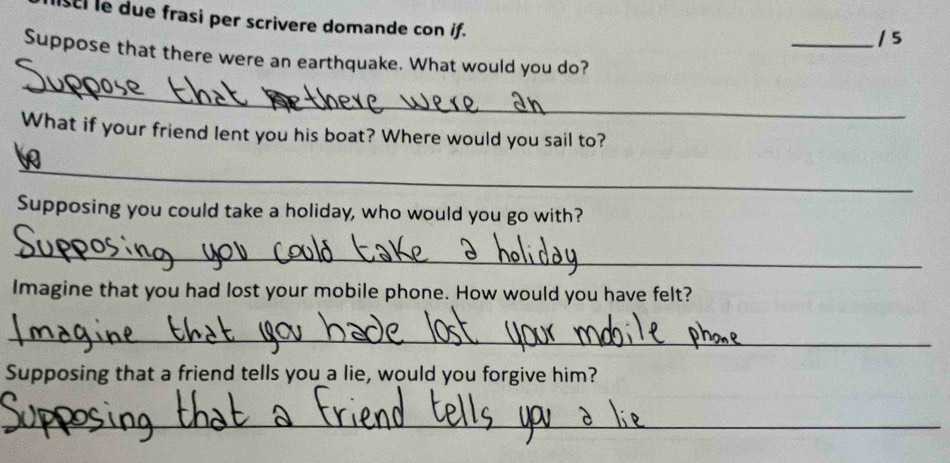 le due frasi per scrivere domande con if.
/ 5
Suppose that there were an earthquake. What would you do?
Suppose that there were an
What if your friend lent you his boat? Where would you sail to?
Supposing you could take a holiday, who would you go with?
Supposing you could take a holiday
Imagine that you had lost your mobile phone. How would you have felt?
Imagine that you hade lost your mobile phone
Supposing that a friend tells you a lie, would you forgive him?
Supposing that a friend tells you a lie